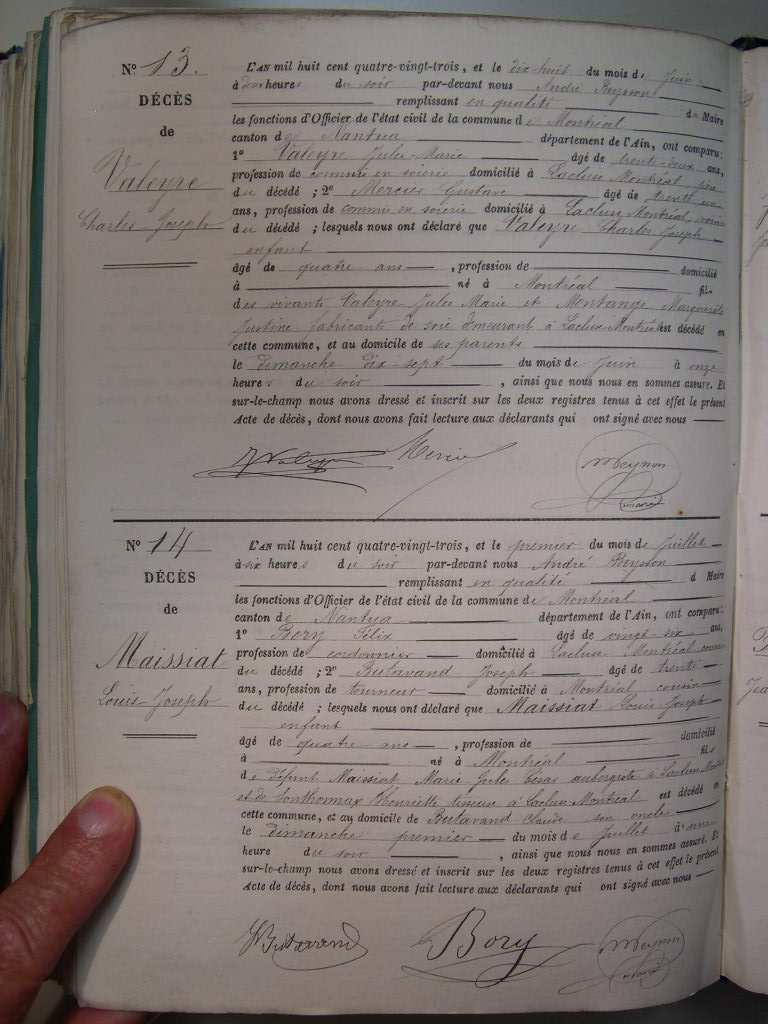 No 13.
DÉCÈS
de
Valeyre
Charles Joseph
L'AN mil huit cent quatre-vingt-trois, et le dix huit du mois de Juin
à heures du soir par-devant nous André Reynon
remplissant en qualité de Maire
les fonctions d'Officier de l'état civil de la commune de Montréal
canton de Nantua département de l'Ain, ont comparu:
1o Valeyre Jules Marie âgé de trente-deux ans,
profession de commis en soierie domicilié à Lacluse Montréal père
du décédé ; 2o Mercier Gustave âgé de trente un
ans, profession de commis en soierie domicilié à Lacluse Montréal, voisin
du décédé ; lesquels nous ont déclaré que Valeyre Charles Joseph
enfant
âgé de quatre ans , profession de domicilié
à né à Montréal fils
des vivants Valeyre Jules Marie et Montange Marguerite
Justine fabricants de soie demeurant à Lacluse Montréal est décédé en
cette commune, et au domicile de ses parents
le dimanche dix sept du mois de Juin à onze
heures du soir , ainsi que nous nous en sommes assuré. Et
sur-le-champ nous avons dressé et inscrit sur les deux registres tenus à cet effet le présent
Acte de décès, dont nous avons fait lecture aux déclarants qui ont signé avec nous
J Valeyre Mercier Reynon
No 14
DÉCÈS
de
Maissiat
Louis Joseph
L'AN mil huit cent quatre-vingt-trois, et le premier du mois de Juillet
à six heures du soir par-devant nous André Reynon
remplissant en qualité d Maire
les fonctions d'Officier de l'état civil de la commune de Montréal
canton de Nantua département de l'Ain, ont comparu:
1o Bory Félix âgé de vingt-six ans,
profession de cordonnier domicilié à Lacluse Montréal cousin
du décédé ; 2o Butavand Joseph âgé de trente
ans, profession de tourneur domicilié à Montréal cousin
du décédé ; lesquels nous ont déclaré que Maissiat Louis Joseph
enfant
âgé de quatre ans , profession de domicilié
à né à Montréal fils
de défunt Maissiat Marie Jules César aubergiste à Lacluse Montréal
et de Henriette à Lacluse Montréal est décédé en
cette commune, et au domicile de Butavand Claude son oncle
le dimanche premier du mois de Juillet à une
heure du soir , ainsi que nous nous en sommes assuré. Et
sur-le-champ nous avons dressé et inscrit sur les deux registres tenus à cet effet le présent
Acte de décès, dont nous avons fait lecture aux déclarants qui ont signé avec nous
Butavand Bory Reynon